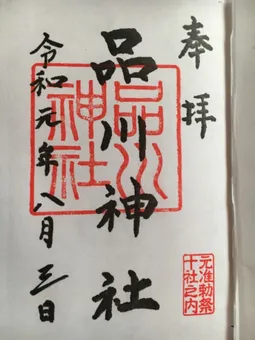 奉拝
品川神社
令和元年八月三日
品川神社
元准勅祭
十社之内